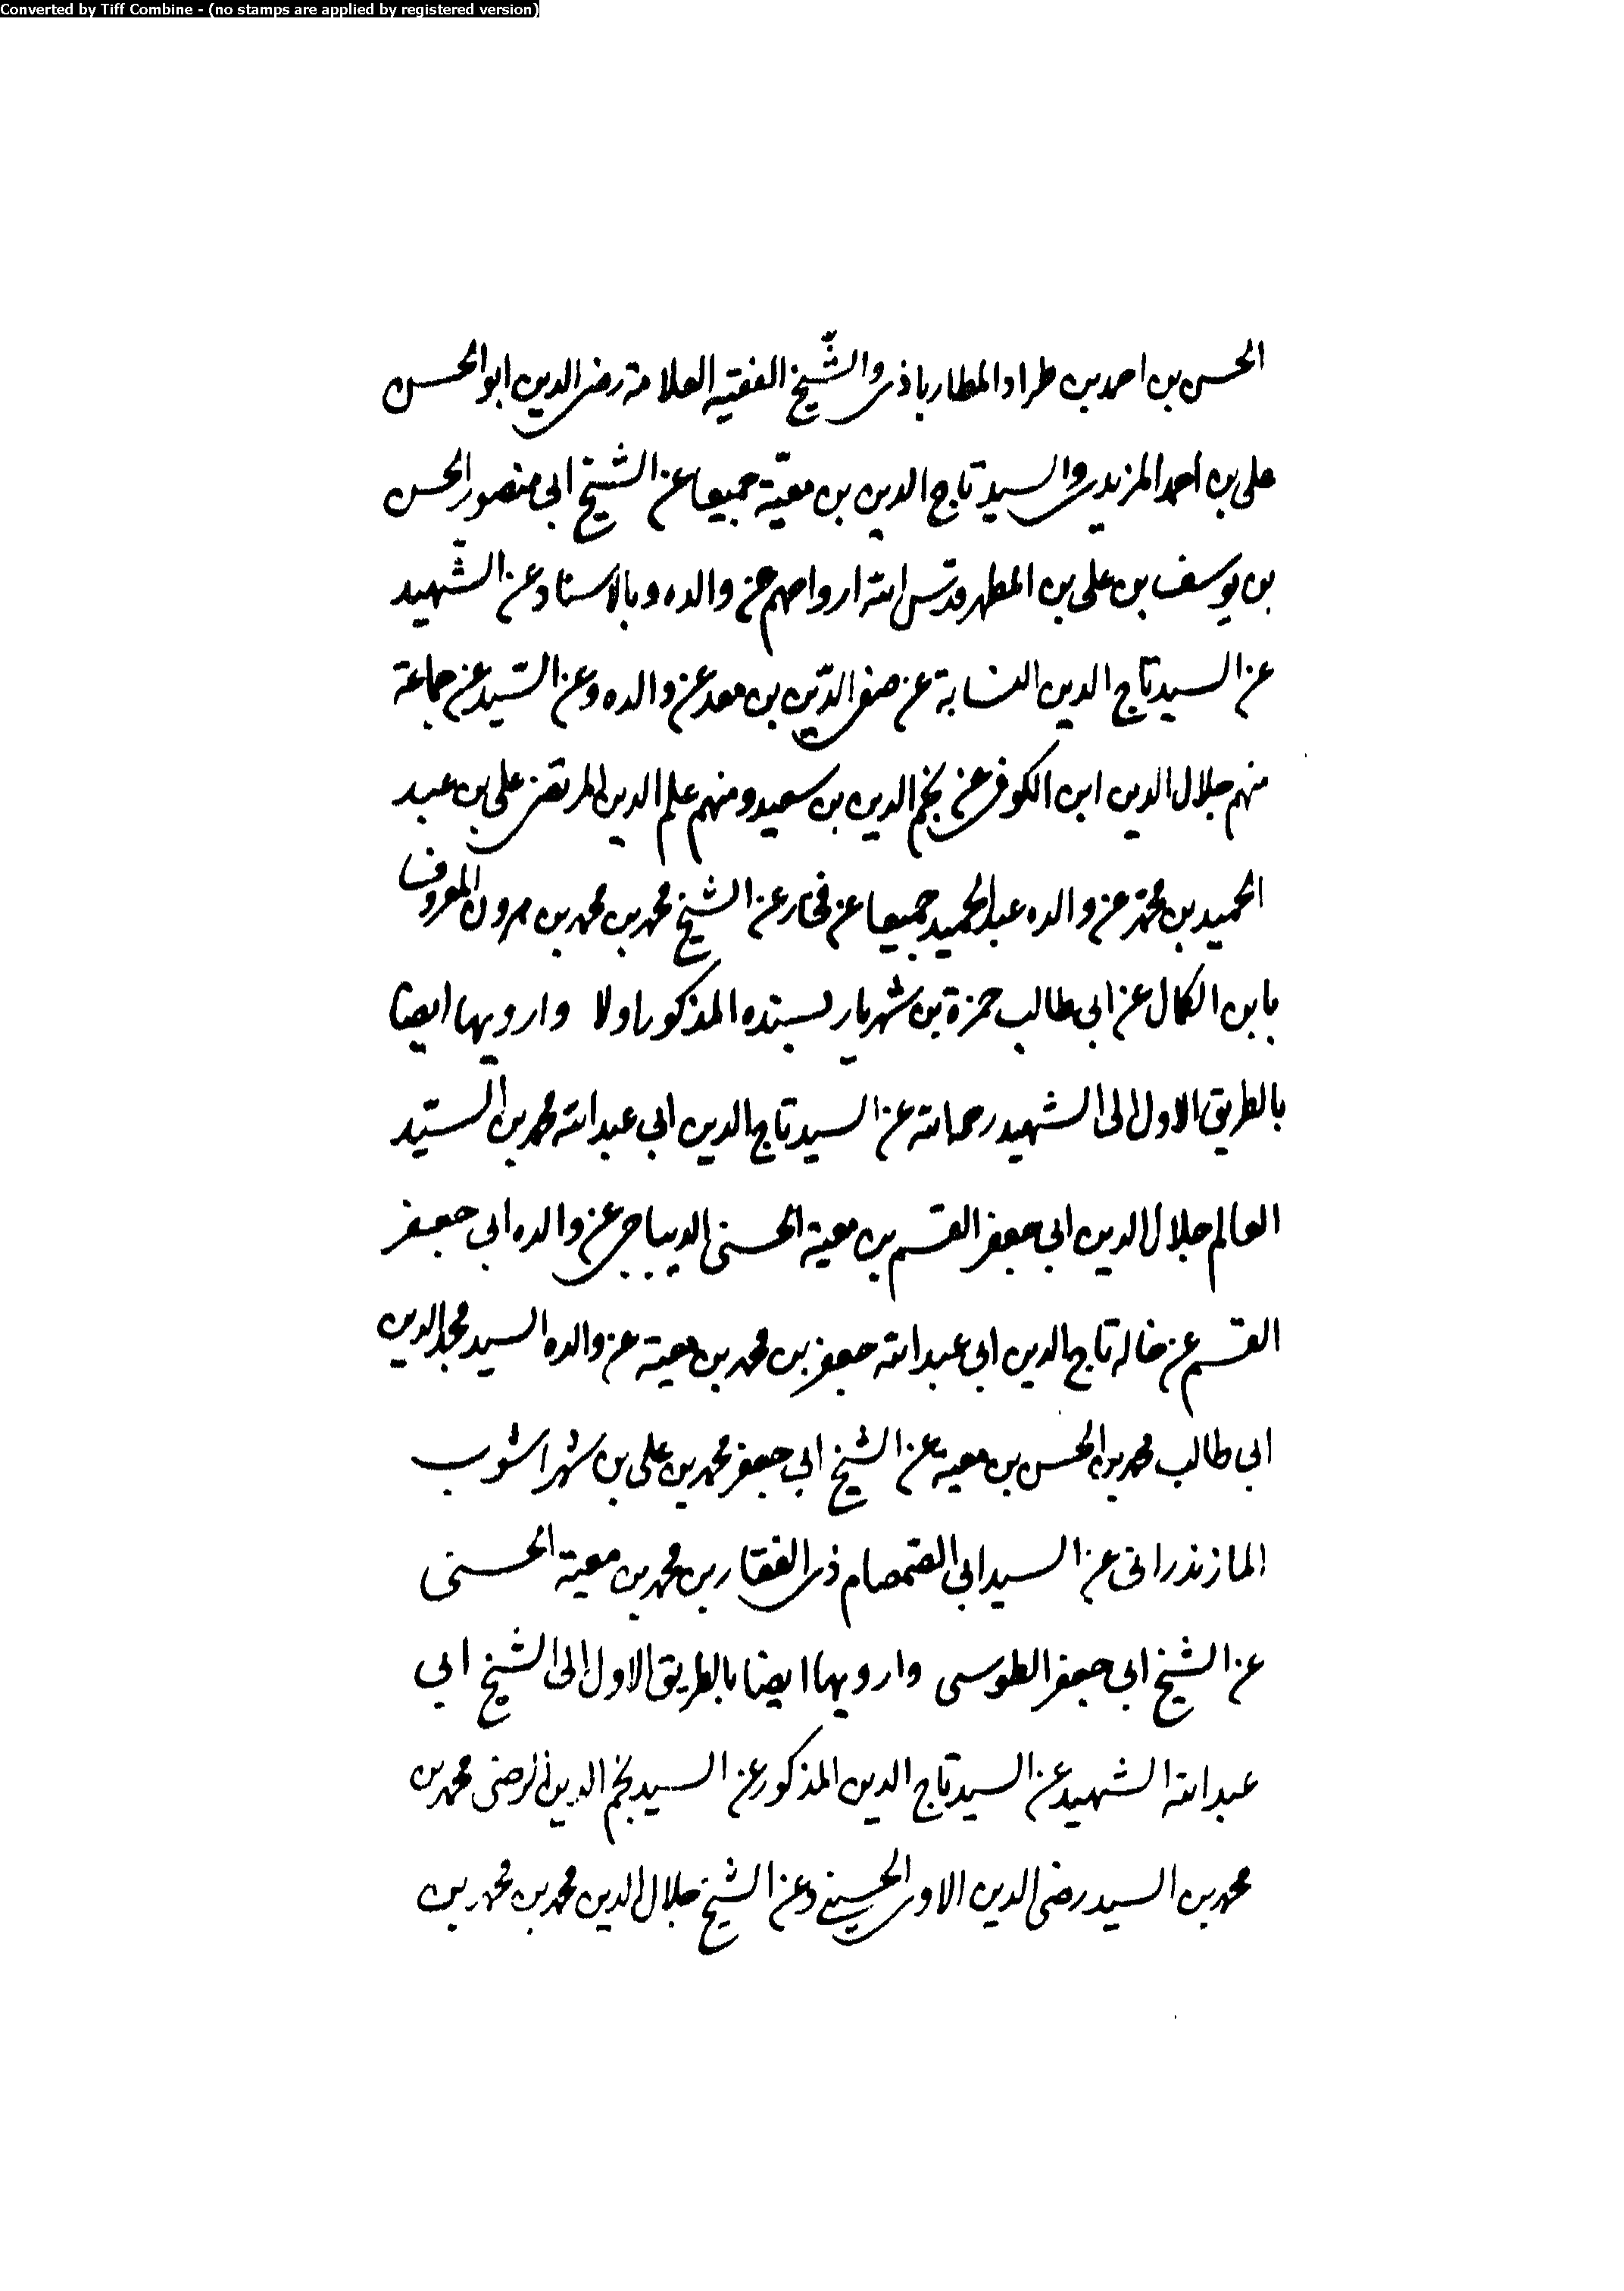 Converted by Tiff Combine - (no stamps are applied by registered version)
الحسن بن احمد بن طراد المطارباذى والشّيخ الفقيه العلامة رضى الدين ابو الحسن
على بن احمد المزيدى والسيد تاج الدين بن معيّة جميعا عن الشيخ ابى منصور الحسن
بن يوسف بن على بن المطهر قدّس الله ارواحهم عن والده وبالاسناد عن الشّهيد
عن السيد تاج الدين النسابة عن صفى الدّين بن معد عن والده وعن السّيد عن جماعة
منهم جلال الدين ابن الكوفى عن نجم الدين بن سعيد ومنهم علم الدين المرتضى على بن عبد
الحميد بن محمّد عن والده عبد الحميد جميعا عن فخار عن الشيخ محمد بن محمد بن هرون المعروف
بابن الكمال عن ابى طالب حمزة بن شهريار بسنده المذكور اولا وارويها ايضا
بالطريق الاول الى الشهيد رحمه الله عن السيد تاج الدين ابى عبد الله محمد بن السيّد
العالم جلال الدين ابى جعفر القسم بن معية الحسنى الديباجى عن والده ابى جعفر
القسم عن خاله تاج الدين ابى عبد الله جعفر بن محمد بن معية عن والده السيد مجد الدين
ابى طالب محمد بن الحسن بن معية عن الشيخ ابى جعفر محمد بن على بن شهراشوب
المازندرانى عن السيد ابى الصّمصام ذى الفقار بن محمد بن معية الحسنى
عن الشيخ ابى جعفر الطوسى وارويها ايضا بالطريق الاول الى الشيخ ابى
عبد الله الشهيد عن السيد تاج الدين المذكور عن السيد نجم الدين الرضى محمد بن
محمد بن السيد رضى الدين الاوى الحسينى وعن الشيخ جلال الدين محمد بن محمد بن